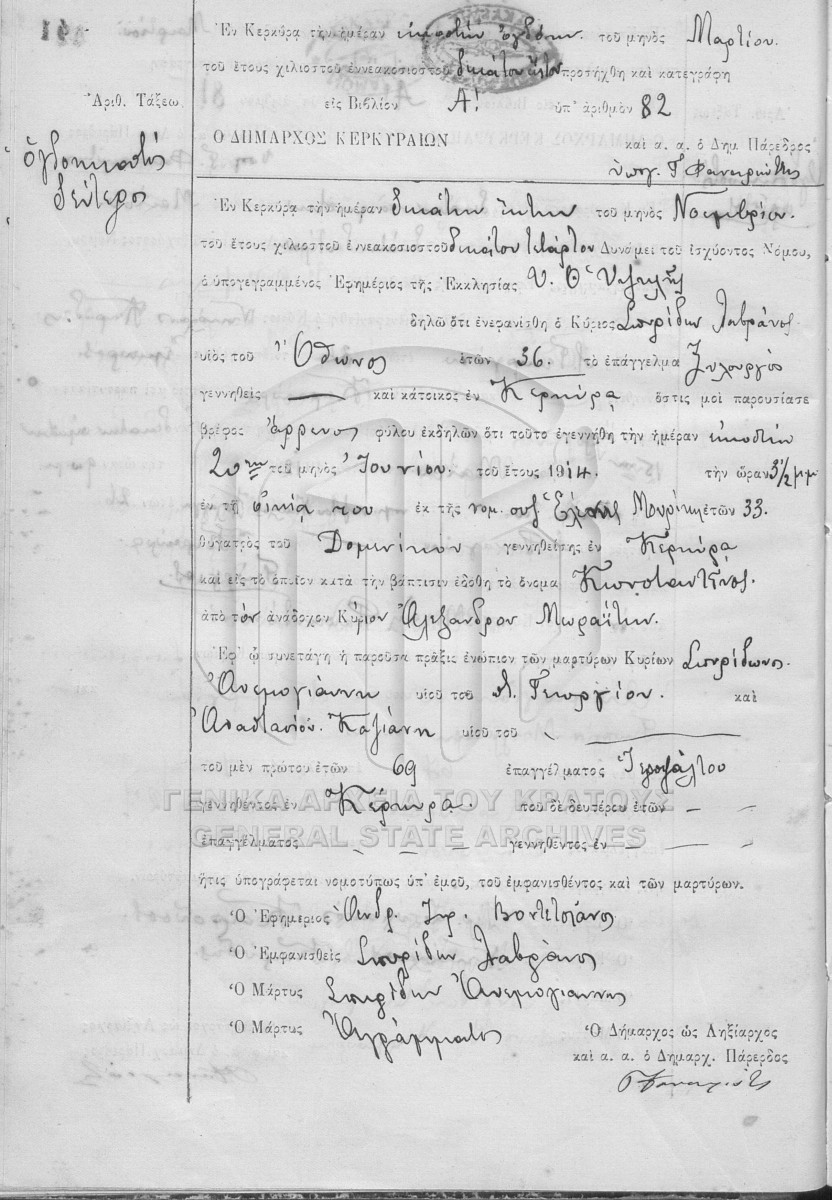 Ἐν Κερκύρᾳ τὴν ἡμέραν εἰκοστὴν ὀγδόην τοῦ μηνὸς Μαρτίου.
τοῦ ἔτους χιλιοστοῦ ἐννεακοσιοστοῦ δεκάτου ἕκτου προσήχθη καὶ κατεγράφη
Ἀριθ. Τάξεω εἰς Βιβλίον Α! ὑπ' ἀριθμὸν 82
ὀγδοηκοστὸς
δεύτερος
Ο ΔΗΜΑΡΧΟΣ ΚΕΡΚΥΡΑΙΩΝ καὶ α. α. ὁ Δημ Πάρεδρος
ὑπογ. Γ
Ἐν Κερκύρᾳ τὴν ἡμέραν δεκάτην ἕκτην τοῦ μηνὸς Νοεμβρίου.
τοῦ ἔτους χιλιοστοῦ ἐννεακοσιοστοῦ δεκάτου τετάρτου Δυνάμει τοῦ ἰσχύοντος Νόμου,
ὁ ὑπογεγραμμένος Ἐφημέριος τῆς Ἐκκλησίας Υ. Θ
δηλῶ ὅτι ἐνεφανίσθη ὁ Κύριος Σπυρίδων Λαβράνος
υἱὸς τοῦ Ὄθωνος ἐτῶν 36. τὸ ἐπάγγελμα ξυλουργὸς
γεννηθεὶς — καὶ κάτοικος ἐν Κερκύρᾳ ὅστις μοὶ παρουσίασε
βρέφος ἄρρενος φύλου ἐκδηλῶν ὅτι τοῦτο ἐγεννήθη τὴν ἡμέραν εἰκοστὴν
20ην τοῦ μηνὸς Ἰουνίου. τοῦ ἔτους 1914. τὴν ὥραν 3½ μμ
ἐν τῇ οἰκίᾳ του ἐκ τῆς νομ. συζ ἐτῶν 33.
θυγατρὸς τοῦ Δομινίκου γεννηθείσης ἐν Κερκύρᾳ
καὶ εἰς τὸ ὁποῖον κατὰ τὴν βάπτισιν ἐδόθη τὸ ὄνομα Κωνσταντῖνος.
ἀπὸ τὸν ἀνάδοχον Κύριον Ἀλέξανδρον Μωραΐτην.
Ἐφ' ᾧ συνετάγη ἡ παροῦσα πρᾶξις ἐνώπιον τῶν μαρτύρων Κυρίων Σπυρίδωνος.
Ἀνεμογιάννη υἱοῦ τοῦ Γεωργίου. καὶ
Ἀναστασίου. Καζιάνη υἱοῦ τοῦ —
τοῦ μὲν πρώτου ἐτῶν 69 ἐπαγγέλματος Ἱεροψάλτου
ΓΕΝΙΚΑ ΑΡΧΕΙΑ ΤΟΥ ΚΡΑΤΟΥΣ
γεννηθέντος ἐν Κέρκυρα. τοῦ δὲ δευτέρου ἐτῶν — —
GENERAL STATE ARCHIVES
ἐπαγγέλματος — — — γεννηθέντος ἐν — — —
ἥτις ὑπογράφεται νομοτύπως ὑπ' ἐμοῦ, τοῦ ἐμφανισθέντος καὶ τῶν μαρτύρων.
Ὁ Ἐφημέριος Ἀνδρ.
Ὁ Ἐμφανισθεὶς Σπυρίδων Λαβράνος
Ὁ Μάρτυς Σπυρίδων Ἀνεμογιάννης
Ὁ Μάρτυς Ἀγράμματος
Ὁ Δήμαρχος ὡς Ληξίαρχος
καὶ α. α. ὁ Δημαρχ. Πάρερδος